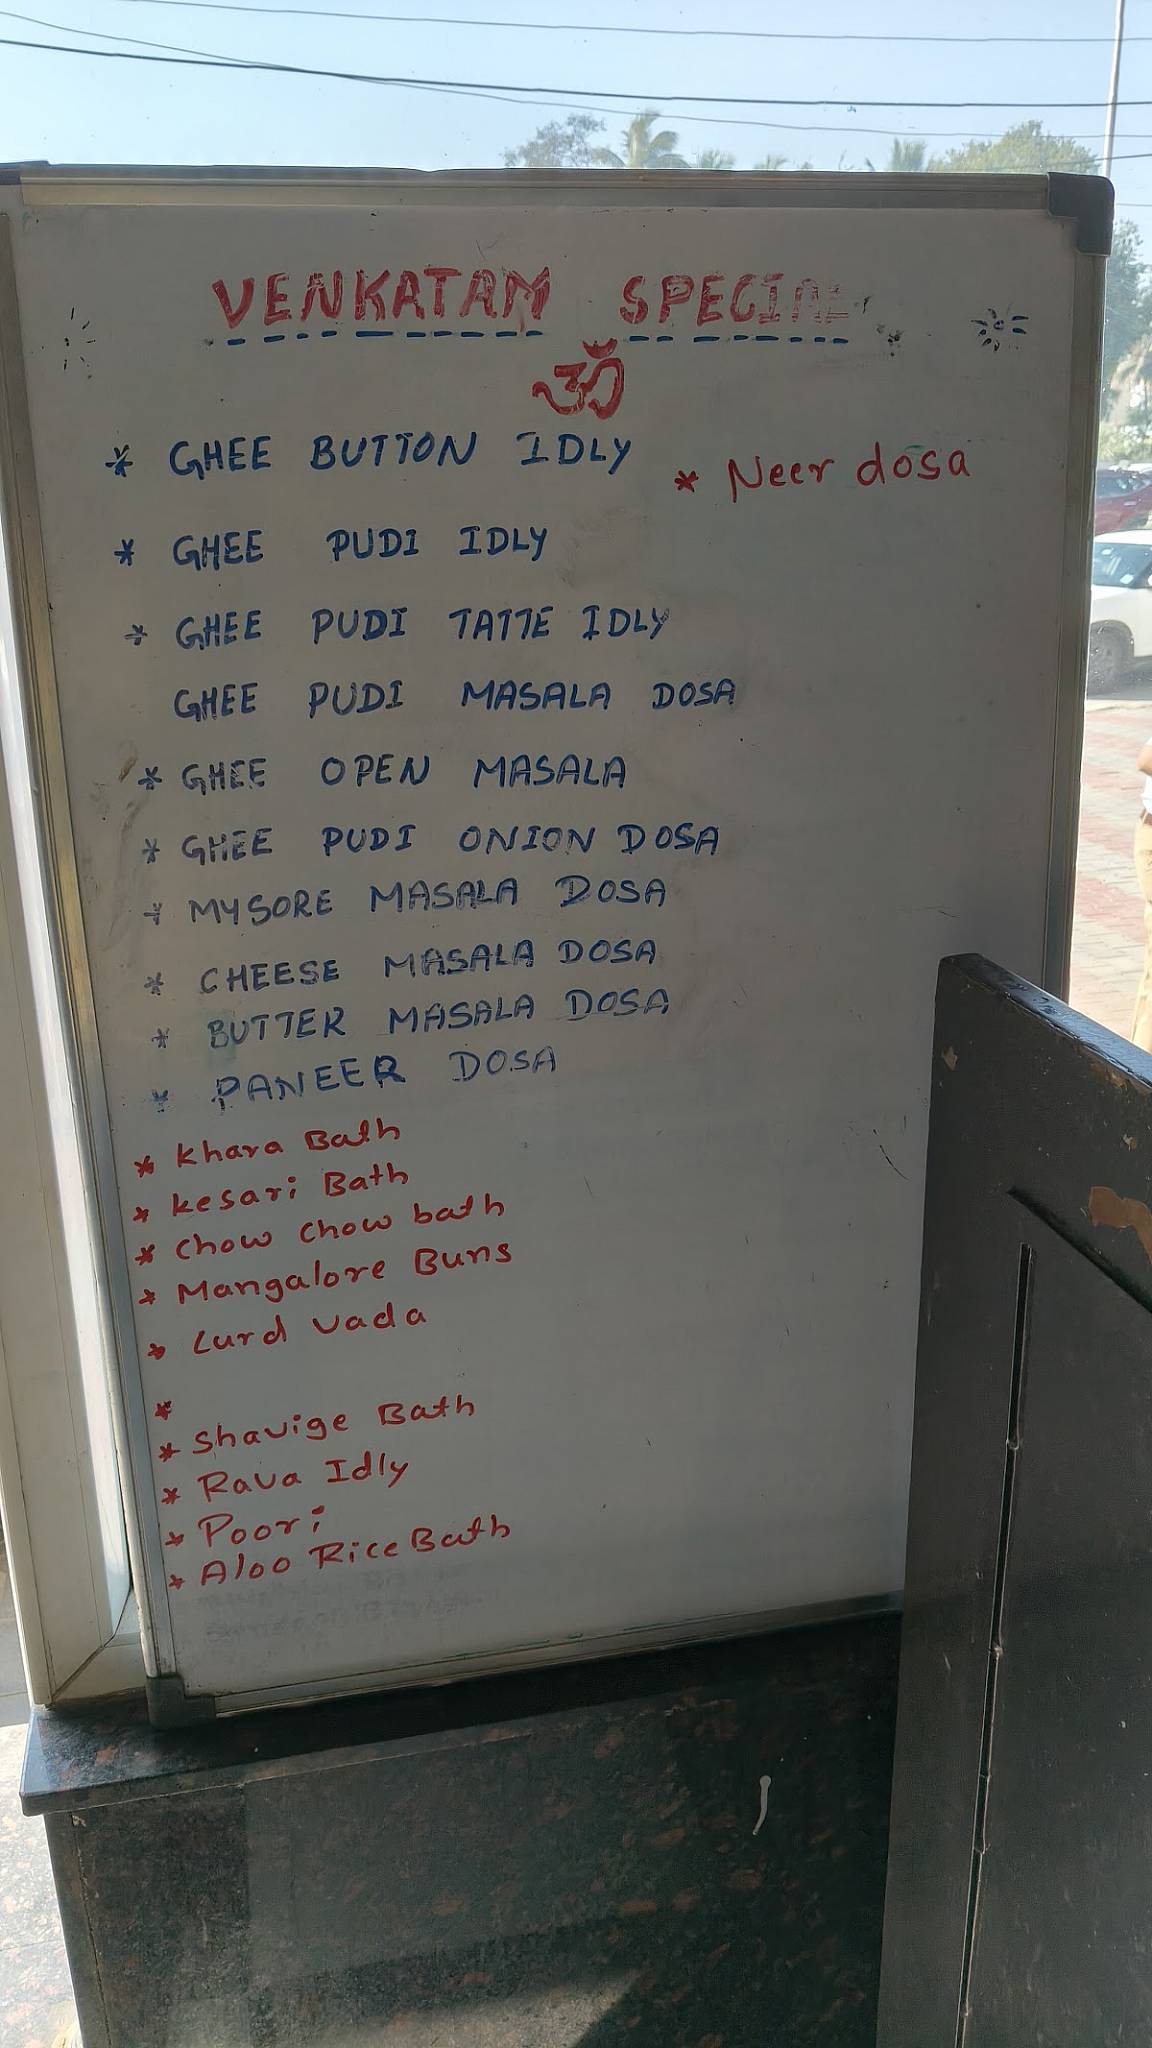 VENKATAM SPECIAL
ॐ
* GHEE BUTTON IDLY
* Neer dosa
* GHEE PUDI IDLY
* GHEE PUDI TATTE IDLY
GHEE PUDI MASALA DOSA
* GHEE OPEN MASALA
* GHEE PUDI ONION DOSA
* MYSORE MASALA DOSA
* CHEESE MASALA DOSA
* BUTTER MASALA DOSA
* PANEER DOSA
* Khara Bath
* kesari Bath
* Chow Chow bath
* Mangalore Buns
* Curd vada
*
* Shavige Bath
* Rava Idly
* Poori
* Aloo Rice Bath